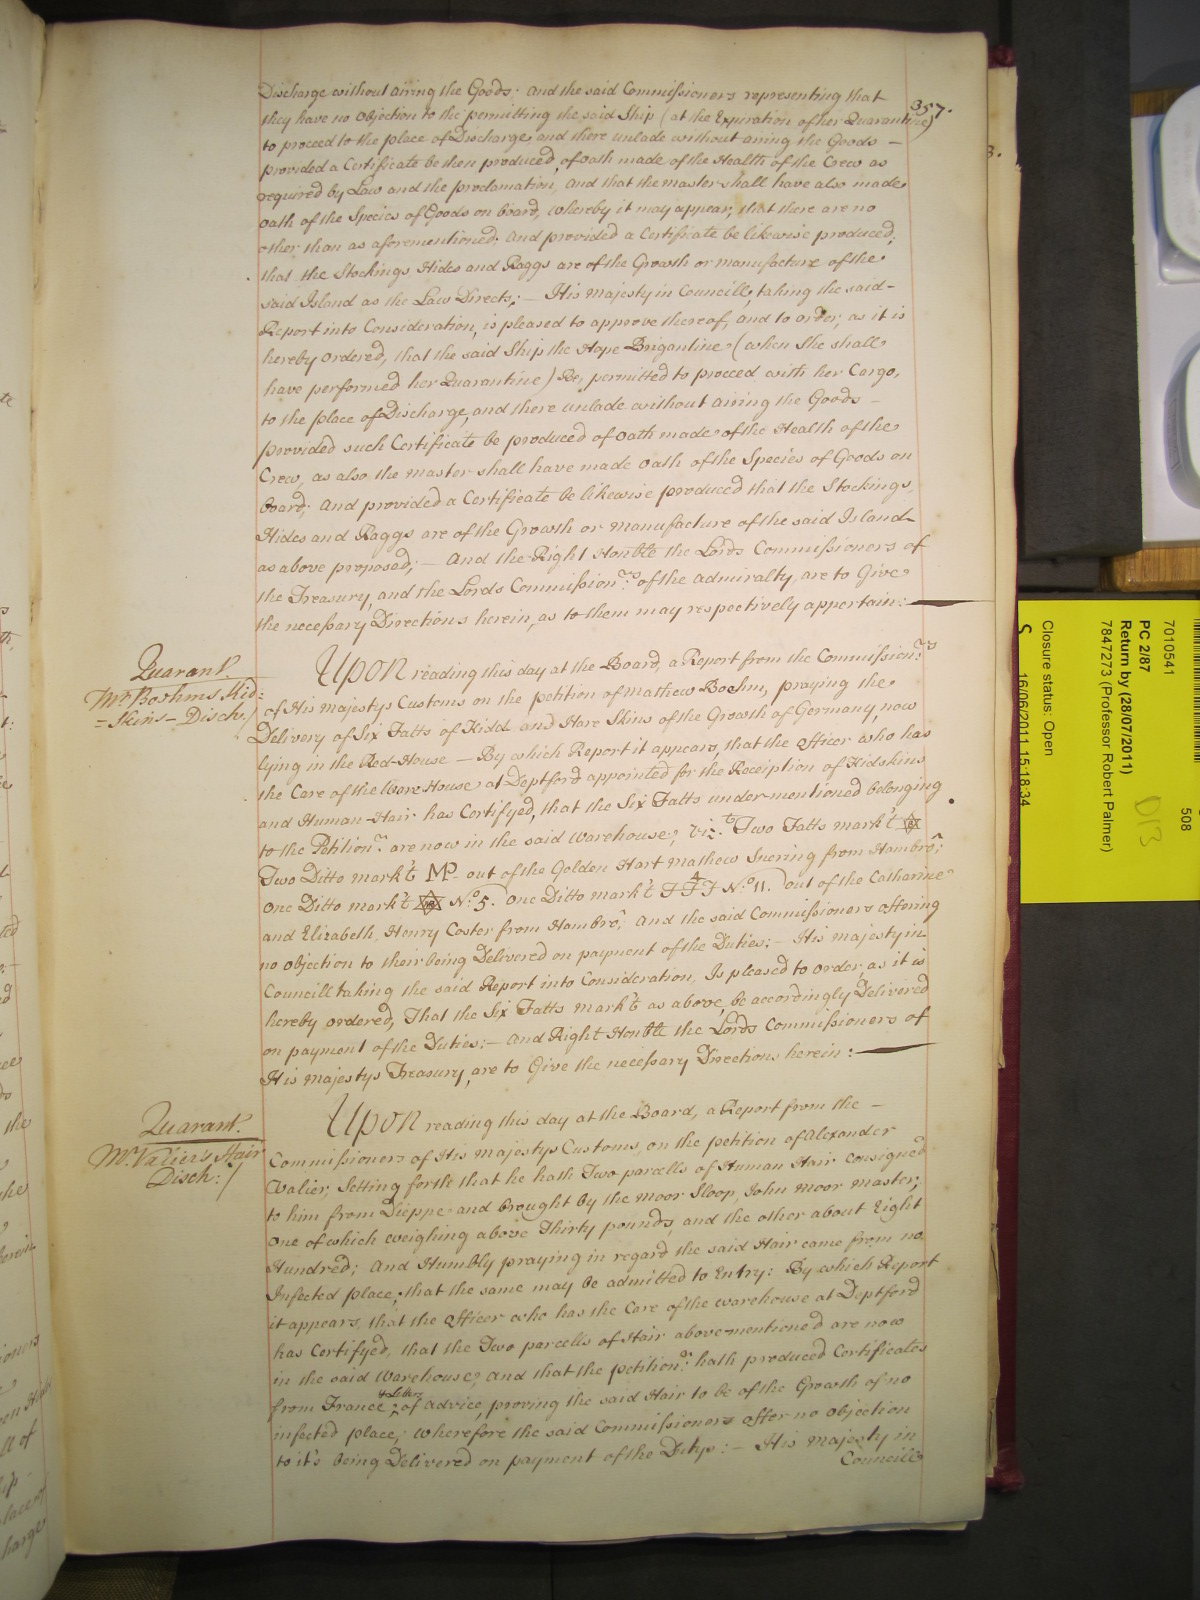 357.
Discharge without airing the Goods; And the said Commissioners representing that
they have no Objection to the permitting the said Ship (at the Expiration of her Quarantine)
to proceed to the place of Discharge and there unlade without airing the Goods —
provided a Certificate be then produced, of oath made of the Health of the Crew as
required by Law and the proclamation, And that the master shall have also made
oath of the Species of Goods on board, whereby it may appear, that there are no
other than as aforementioned; And provided a Certificate be likewise produced,
that the Stockings Hides and Raggs are of the Growth or manufacture of the
said Island as the Law Directs; — His Majesty in Councill, taking the said –
Report into Consideration, is pleased to approve thereof, and to order, as it is
hereby Ordered, that the said Ship the Hope Brigantine (when She shall
have performed her Quarantine) Be, permitted to proceed with her Cargo,
to the place of Discharge, and there unlade without airing the Goods –
provided such Certificate be produced of oath made of the Health of the
Crew, as also the master shall have made oath of the Species of Goods on
board; And provided a Certificate be likewise produced that the Stockings,
Hides and Raggs are of the Growth or manufacture of the said Island
as above proposed; — And the Right Honble the Lords Commissioners of
the Treasury, and the Lords Commission.rs of the admiralty, are to Give
the necessary Directions herein, as to them may respectively appertain:
Quarant.
Mr. Boehms Kid=
=Skins – Disch:/
Upon reading this day at the Board, a Report from the Commission.rs
of His majestys Customs on the petition of mathew Boehm, praying the
Delivery of Six Fatts of Kidd and Hare Skins of the Growth of Germany, now
lying in the Red-House — By which Report it appears, that the Officer who has
the Care of the Ware House at Deptford appointed for the Reception of Kidskins
and Human-Hair has Certifyed, that the Six Fatts under-mentioned belonging
to the Petition.r are now in the said Warehouse, viz.t Two Fatts mark't
Two Ditto mark't MP out of the Golden Hart mathew Suering from Hambro';
One Ditto mark't No. 5. One Ditto mark't No. 11. out of the Catharine
and Elizabeth, Henry Coster from Hambro', And the said Commissioners offering
no objection to their being Delivered on payment of the Duties; – His majesty in
Councill taking the said Report into Consideration, Is pleased to order, as it is
hereby ordered, That the Six Fatts mark't as above, be accordingly Delivered
on payment of the Duties: – And Right Honble the Lords Commissioners of
His majestys Treasury, are to Give the necessary Directions herein:
Quarant.
Mr. Valier's Hair
Disch:/
Upon reading this day at the Board, a Report from the –
Commissioners of His majestys Customs, on the petition of Alexander
Valier, Setting forth that he hath Two parcells of Human Hair consigned
to him from Dieppe and brought by the moor Sloop, John moor master;
One of which weighing above Thirty pounds, and the other about Eight
Hundred; And Humbly praying in regard the said Hair came from no
Infected place, that the same may be admitted to Entry: By which Report
it appears, that the Officer who has the Care of the warehouse at Deptford
has Certifyed, that the Two parcells of Hair abovementioned are now
in the said Warehouse, And that the petition.r hath produced Certificates
from France & Letters of advice, proving the said Hair to be of the Growth of no
infected place; wherefore the said Commissioners offer no objection
to it's being Delivered on payment of the Dutys: – His Majesty in
Councill
7010541
PC 2/87
Return by (28/07/2011)
7847273 (Professor Robert Palmer)
Closure status: Open
S
16/06/2011 15:18:34
508
D13